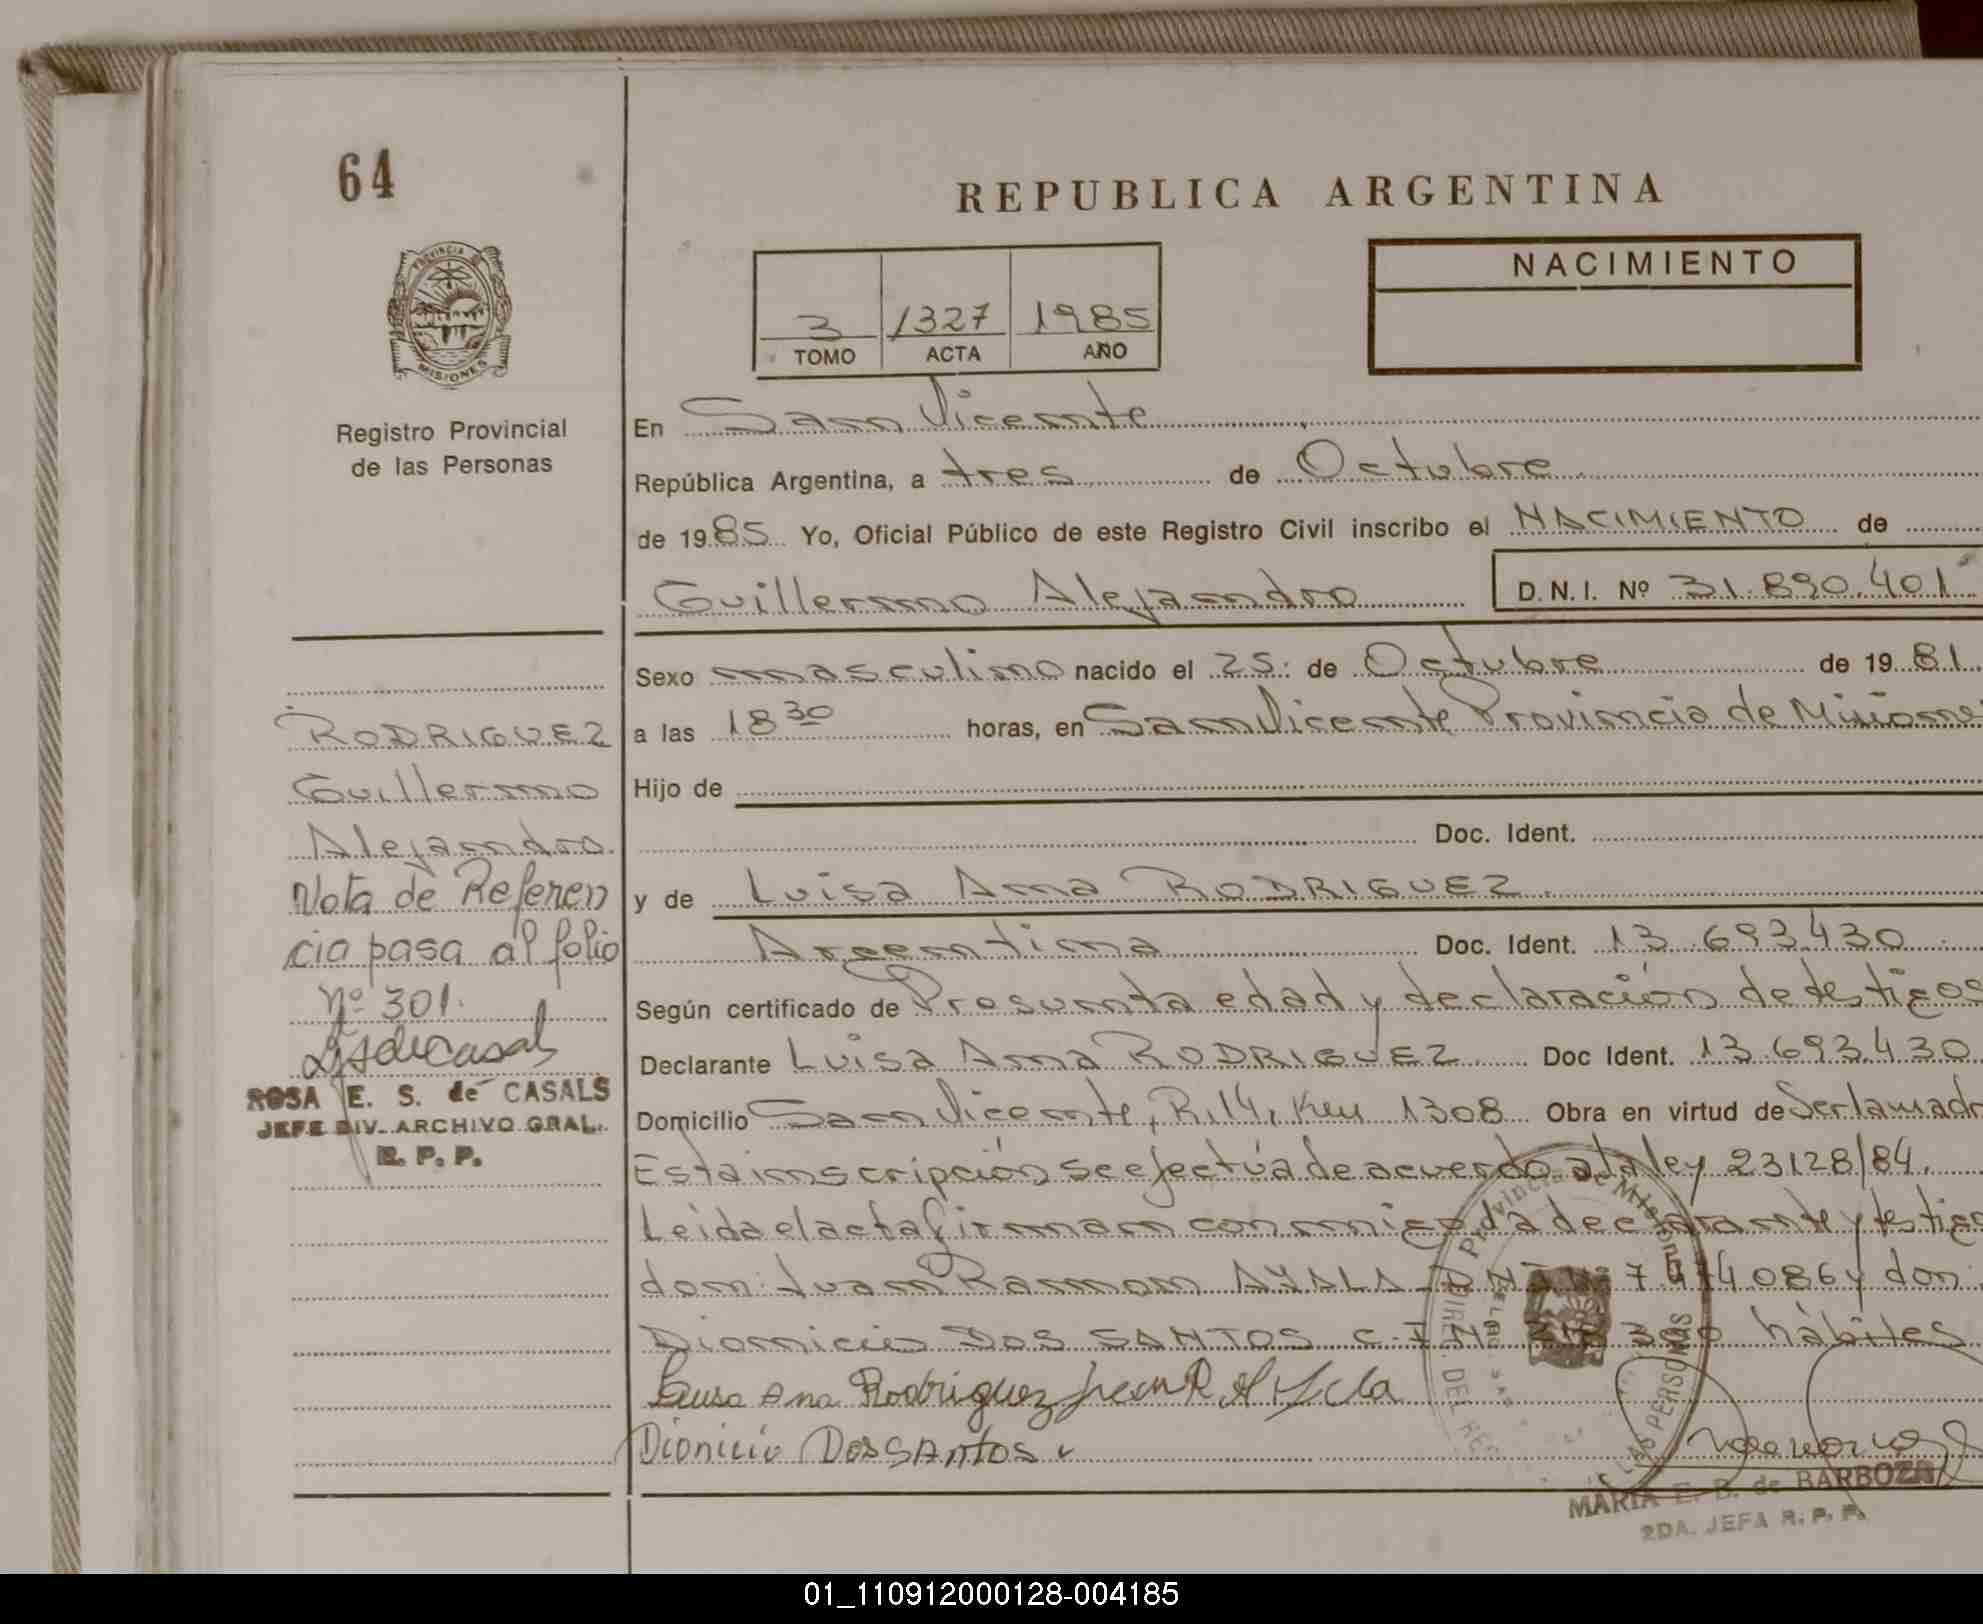 64
REPUBLICA ARGENTINA
PROVINCIA DE
MISIONES
NACIMIENTO
3 1327 1985
TOMO ACTA AÑO
Registro Provincial
de las Personas
En San Vicente
República Argentina, a tres de Octubre
de 1985 Yo, Oficial Público de este Registro Civil inscribo el NACIMIENTO de
Guillermo Alejandro D.N.I. Nº 31.890.401
Sexo masculino nacido el 25 de Octubre de 1981
a las 18 30 horas, en San Vicente Provincia de Misiones
Hijo de
Doc. Ident.
y de Luisa Ana RODRIGUEZ.
Argentina Doc. Ident. 13.693.430
Según certificado de Presunta edad y declaración de testigos
Declarante Luisa Ana RODRIGUEZ. Doc Ident. 13.693.430
Domicilio San Vicente, R.14, Km 1308 Obra en virtud de Ser la madre
Esta inscripción se efectúa de acuerdo a la ley 23128/84.
Leida el acta firman conmigo la declarante y testigos
don: Juan Ramon AYALA 086 y don
Dionicio DOS SANTOS C.I Nº hábiles
Luisa Ana Rodriguez Juan R Ayala
Dionicio Dos SAntos
RODRIGUEZ
Guillermo
Alejandro
Nota de Referen
cia pasa al folio
nº 301.
ROSA E. S. de CASALS
JEFE DIV. ARCHIVO GRAL.
R. P. P.
Provincia de Misiones
LAS PERSONAS
MARIA E. B. de BARBOZA
2DA. JEFA R. P. P.
01_110912000128-004185